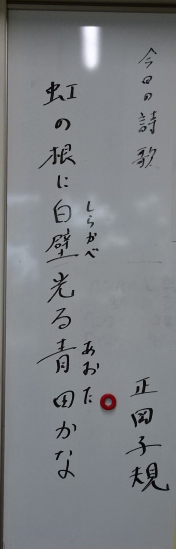 今日の詩歌
虹の根に白壁光る青田かな
しらかべ
あおた
正岡子規